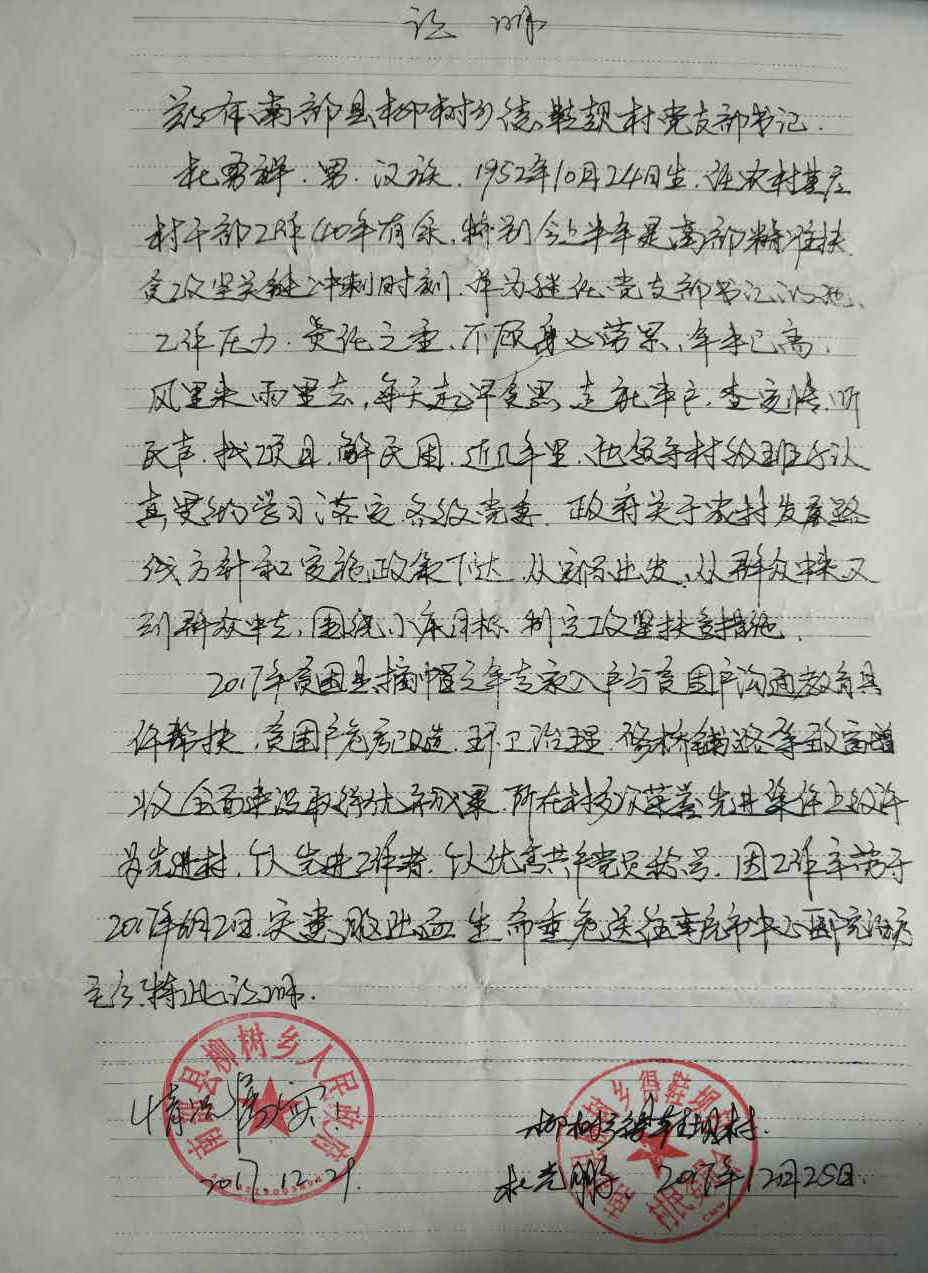 证明
兹有南部县柳树乡得鞋坝村党支部书记.
杜勇祥.男.汉族.1952年10月24日生.任农村基层
村干部工作40年有余,特别今上半年是南部精准扶
贫攻坚关键冲刺时刻.作为继任党支部书记的他、
工作压力.责任之重.不顾身心劳累,年事已高.
风里来雨里去,每天起早贪黑,走村串户.查实情.听
民声.找项目.解民困.近几年里.他领导村级班子认
真贯彻学习落实各级党委.政府关于农村发展路
线方针和实施政策下达.从实际出发,从群众中来又
到群众中去,围绕小康目标.制定攻坚扶贫措施.
2017年贫困县摘帽之年专家入户与贫困户沟通教育具
体帮扶.贫困户危房改造.环卫治理.修桥铺路等致富增
收全面建设取得优新成果.所在村多次荣誉先进集体上级评
为先进村.个人先进工作者.个人优秀共产党员称号.因工作辛劳于
2017年6月2日.突患脑出血.生命垂危送往南充市中心医院治疗
至今.特此证明.
南部县柳树乡人民政府
情况属实!
2017.12.29.
柳树乡得鞋坝村.
杜光明 2017年12月25日.